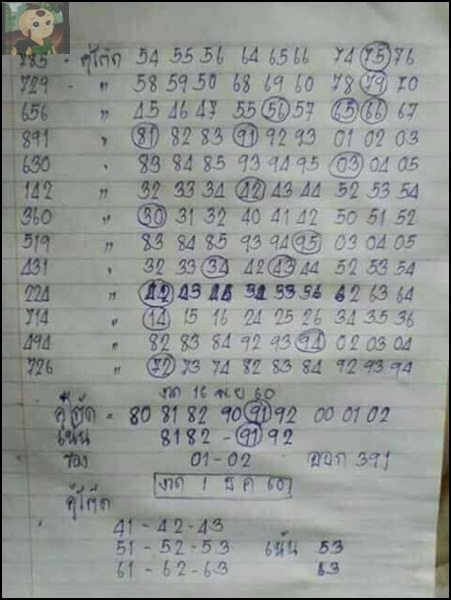 785 - คู่โต๊ด 54 55 56 64 65 66 74 75 76
729 - " 58 59 50 68 69 60 78 79 70
656 " 45 46 47 55 56 57 65 66 67
891 " 81 82 83 91 92 93 01 02 03
630 " 83 84 85 93 94 95 03 04 05
142 " 32 33 34 42 43 44 52 53 54
360 " 30 31 32 40 41 42 50 51 52
519 " 83 84 85 93 94 95 03 04 05
431 " 32 33 34 42 43 44 52 53 54
224 " 42 43 44 54 53 56 62 63 64
714 " 14 15 16 24 25 26 34 35 36
494 " 82 83 84 92 93 94 02 03 04
726 " 72 73 74 82 83 84 92 93 94
งวด 16 พ.ย 60
คู่โต๊ด = 80 81 82 90 91 92 00 01 02
เน้น 81 82 - 91 92
รอง 01-02 ออก 391
งวด 1 ธ ค 60
คู่โต๊ด
41-42-43
51-52-53 เน้น 53
61-62-63 63